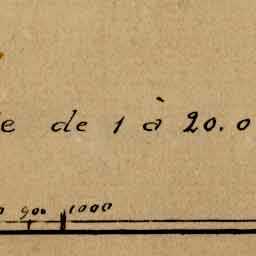 e de 1 à 20.0
0 900 1000